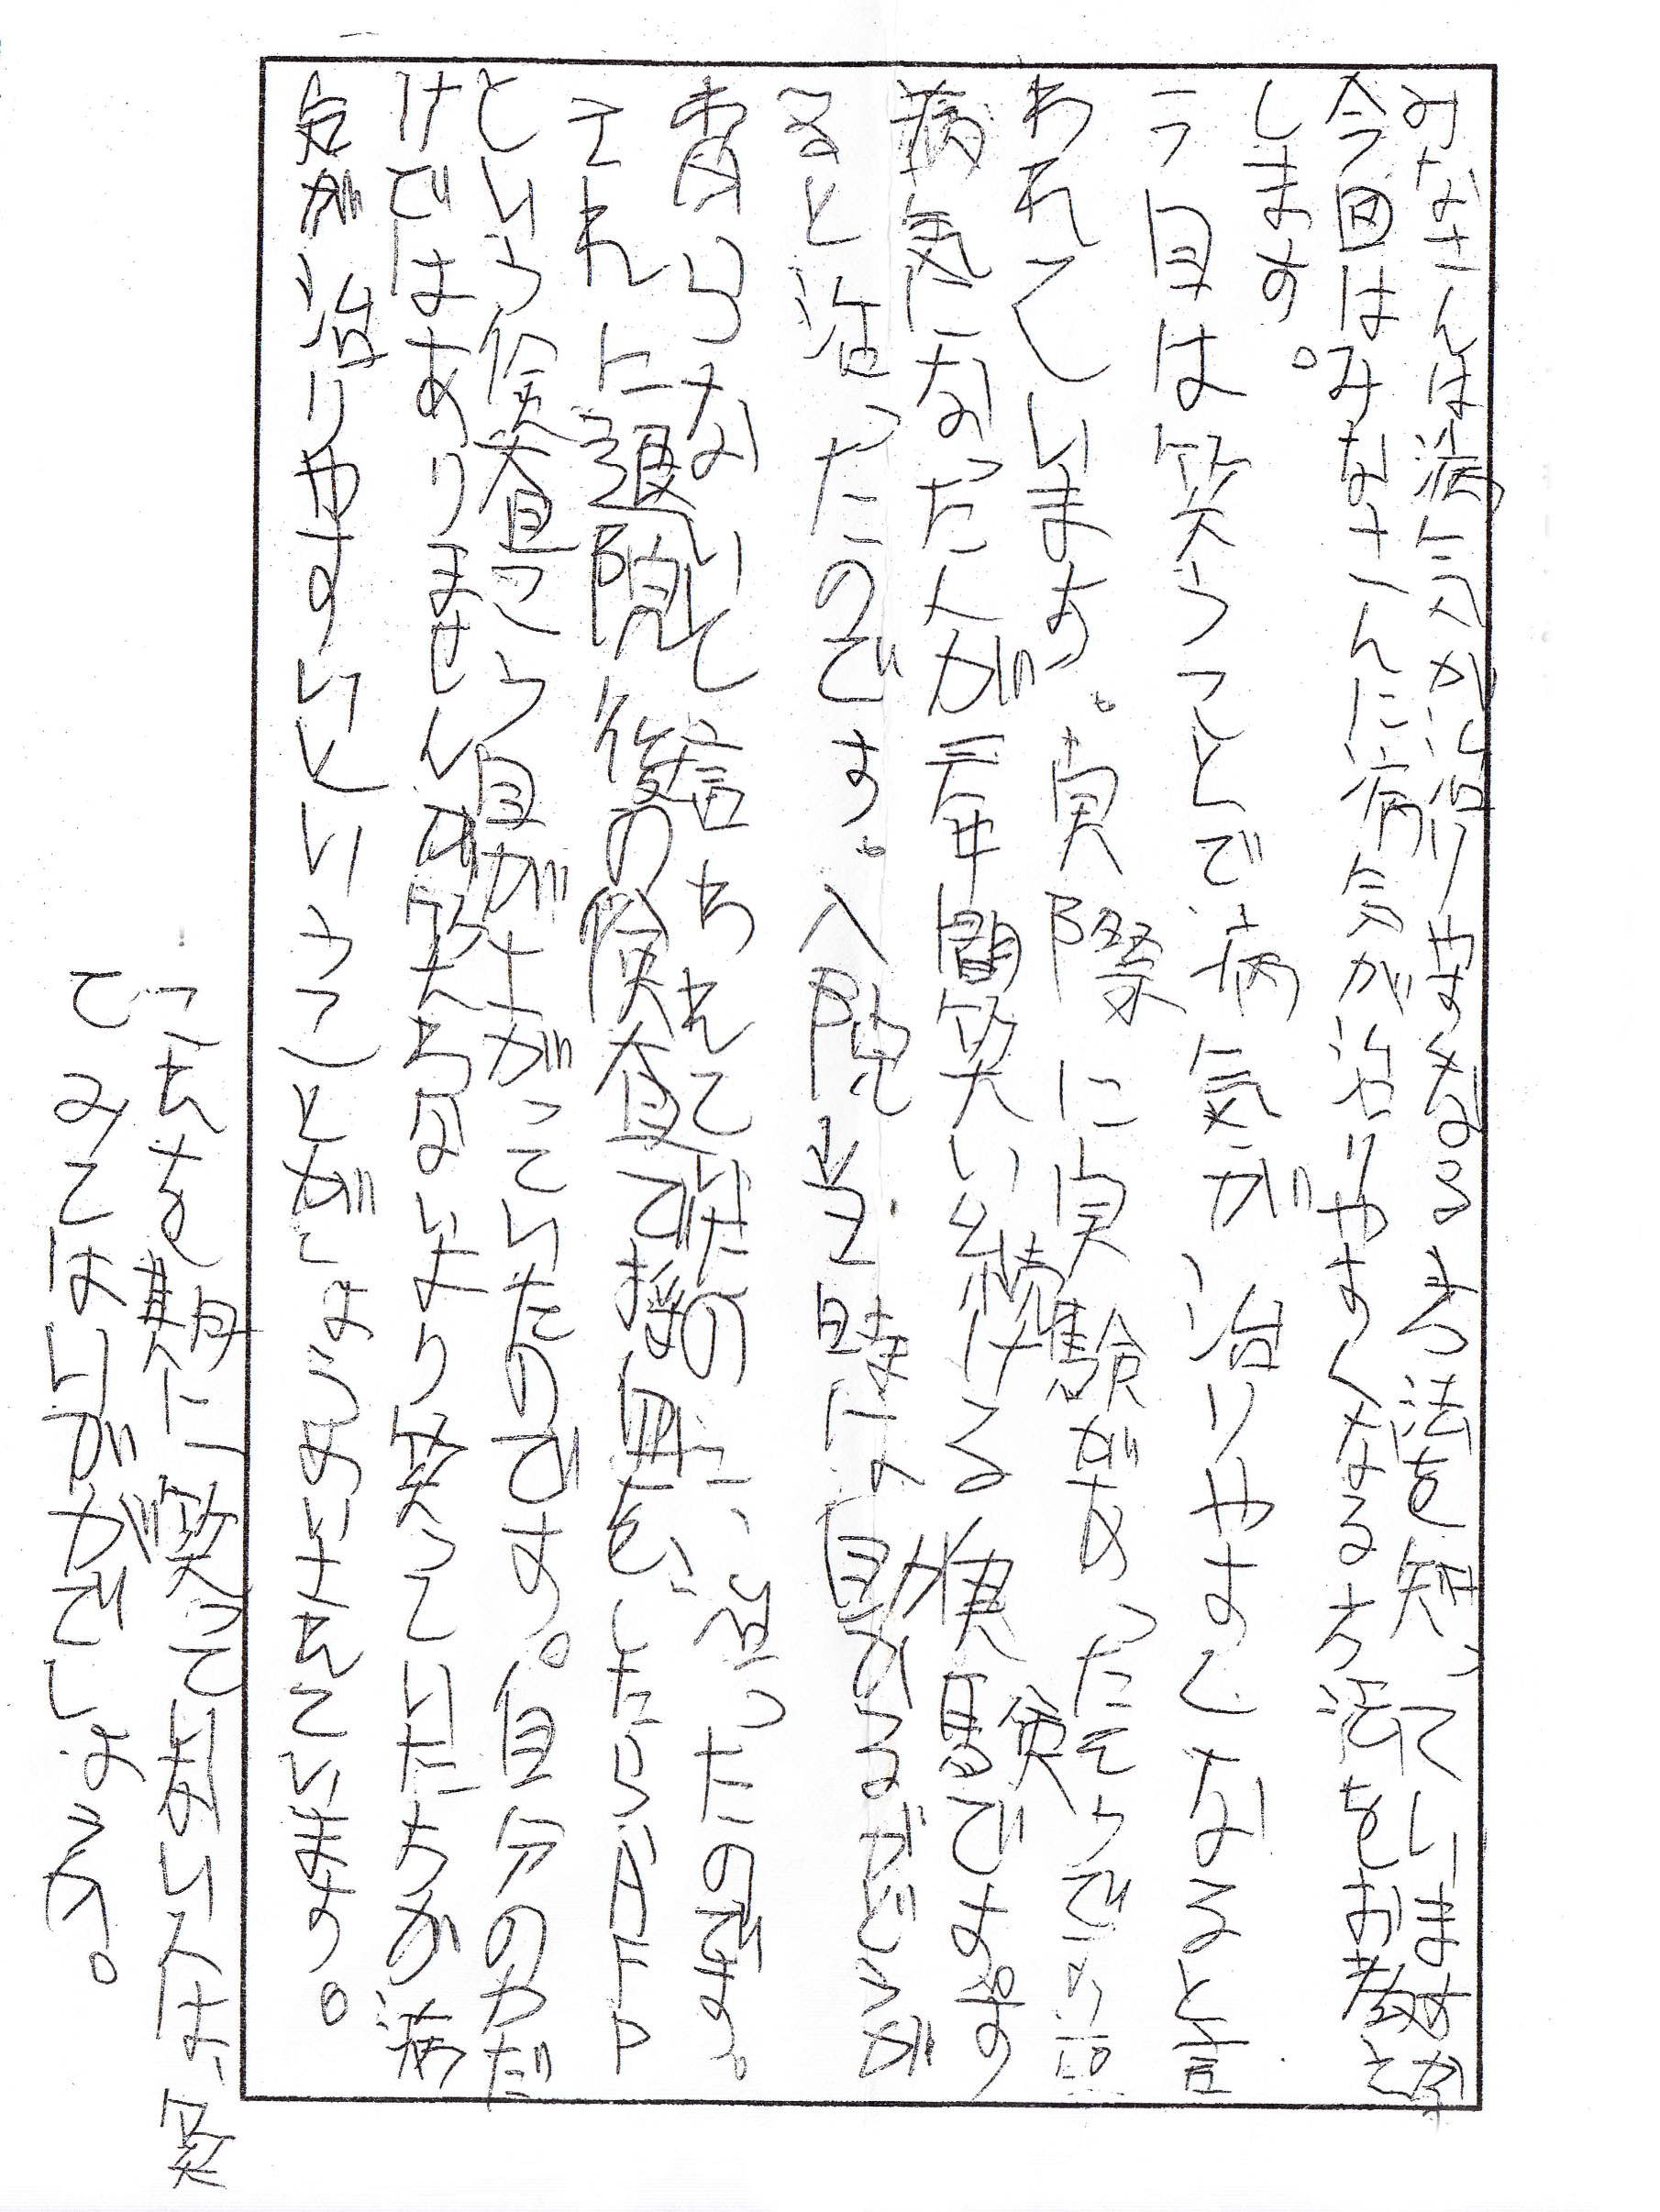 みなさんは病気が治りやすくなる方法を知っていますか
今回はみなさんに病気が治りやすくなる方法をお教え
します。
一つ目は笑うことで病気が治りやすくなると言
われています。実際に実験があったそうです
病気になった人が三年間笑い続ける実験です。す
ると治ったのです。入院当時は自力かるがどうが
青いないして言われていたのに、治ったのです。
それに退院後の検査で採血をしたらAFP
という検査こう目が上がっていたのです。自分の力だ
けではありませんが笑わないより笑っていた方が病
気が治りやすいということがしょうめいされています。
これを期に、笑ってない人は、笑っ
てみてはいががでしょうか。